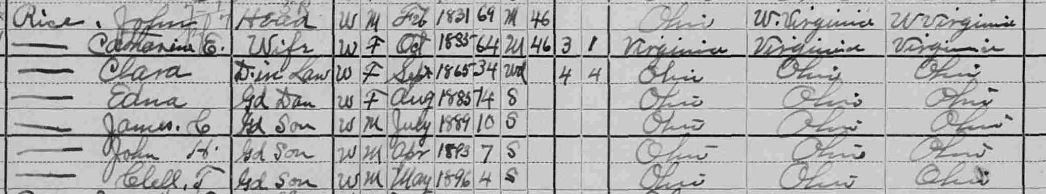 Rice, John Head W M Feb 1831 69 M 46 Ohio W. Virginia W Virginia
— Catharine E. Wife W F Oct 1835 64 M 46 3 1 Virginia Virginia Virginia
— Clara D in Law W F Sept 1865 34 Wd 4 4 Ohio Ohio Ohio
— Edna Gd Dau W F Aug 1885 14 S Ohio Ohio Ohio
— James. C Gd Son W M July 1889 10 S Ohio Ohio Ohio
— John H. Gd Son W M Apr 1893 7 S Ohio Ohio Ohio
— Clell. T Gd Son W M May 1896 4 S Ohio Ohio Ohio